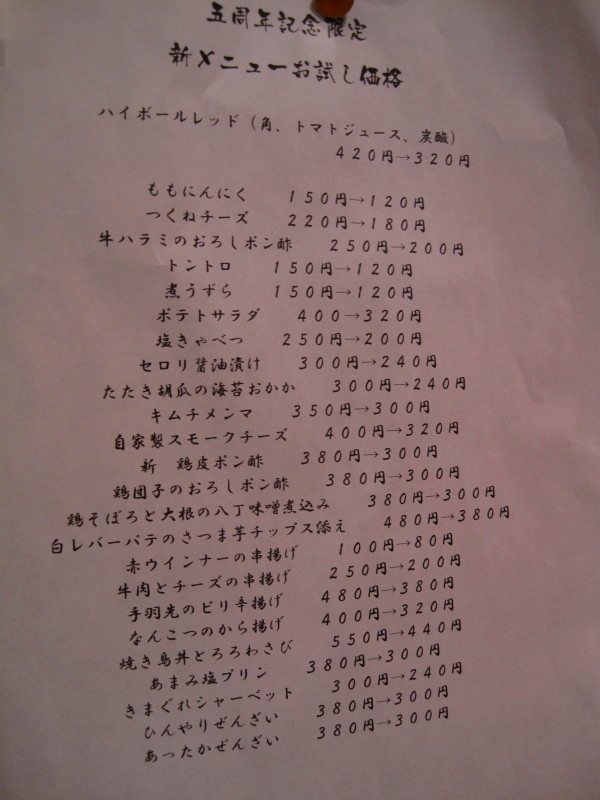 五周年記念限定
新メニューお試し価格
ハイボールレッド（角、トマトジュース、炭酸）
４２０円→３２０円
ももにんにく　１５０円→１２０円
つくねチーズ　２２０円→１８０円
牛ハラミのおろしポン酢　２５０円→２００円
トントロ　１５０円→１２０円
煮うずら　１５０円→１２０円
ポテトサラダ　４００→３２０円
塩きゃべつ　２５０円→２００円
セロリ醤油漬け　３００円→２４０円
たたき胡瓜の海苔おかか　３００円→２４０円
キムチメンマ　３５０円→３００円
自家製スモークチーズ　４００円→３２０円
新　鶏皮ポン酢　３８０円→３００円
鶏団子のおろしポン酢　３８０円→３００円
鶏そぼろと大根の八丁味噌煮込み　３８０円→３００円
白レバーパテのさつま芋チップス添え　４８０円→３８０円
赤ウインナーの串揚げ　１００円→８０円
牛肉とチーズの串揚げ　２５０円→２００円
手羽先のピリ辛揚げ　４８０円→３８０円
なんこつのから揚げ　４００円→３２０円
焼き鳥丼とろろわさび　５５０円→４４０円
あまみ塩プリン　３８０円→３００円
きまぐれシャーベット　３００円→２４０円
ひんやりぜんざい　３８０円→３００円
あったかぜんざい　３８０円→３００円